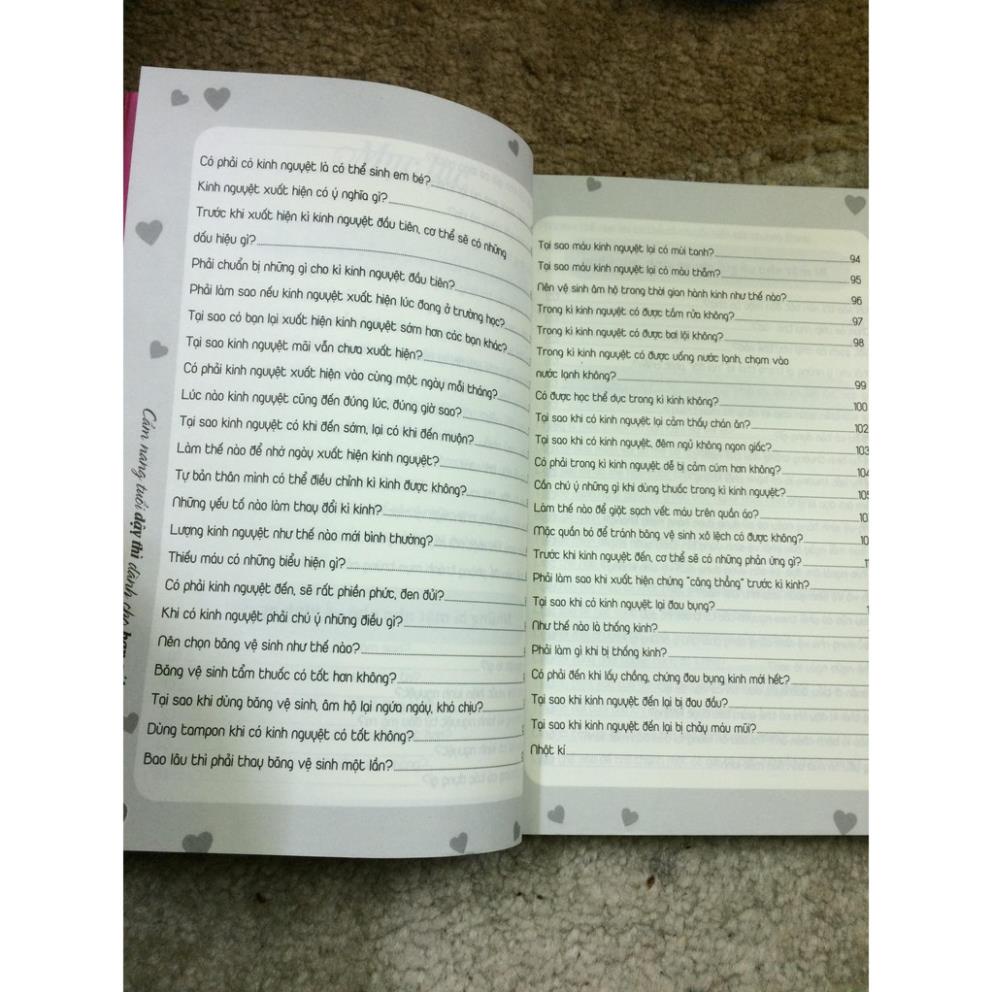 Có phải có kinh nguyệt là có thể sinh em bé?
Kinh nguyệt xuất hiện có ý nghĩa gì?
Trước khi xuất hiện kì kinh nguyệt đầu tiên, cơ thể sẽ có những
dấu hiệu gì?
Phải chuẩn bị những gì cho kì kinh nguyệt đầu tiên?
Phải làm sao nếu kinh nguyệt xuất hiện lúc đang ở trường học?
Tại sao có bạn lại xuất hiện kinh nguyệt sớm hơn các bạn khác?
Tại sao kinh nguyệt mãi vẫn chưa xuất hiện?
Có phải kinh nguyệt xuất hiện vào cùng một ngày mỗi tháng?
Lúc nào kinh nguyệt cũng đến đúng lúc, đúng giờ sao?
Tại sao kinh nguyệt có khi đến sớm, lại có khi đến muộn?
Làm thế nào để nhớ ngày xuất hiện kinh nguyệt?
Tự bản thân mình có thể điều chỉnh kì kinh được không?
Những yếu tố nào làm thay đổi kì kinh?
Lượng kinh nguyệt như thế nào mới bình thường?
Thiếu máu có những biểu hiện gì?
Có phải kinh nguyệt đến, sẽ rất phiền phức, đen đủi?
Khi có kinh nguyệt phải chú ý những điều gì?
Nên chọn băng vệ sinh như thế nào?
Băng vệ sinh tẩm thuốc có tốt hơn không?
Tại sao khi dùng băng vệ sinh, âm hộ lại ngứa ngáy, khó chịu?
Dùng tampon khi có kinh nguyệt có tốt không?
Bao lâu thì phải thay băng vệ sinh một lần?
Cẩm nang tuổi dậy thì dành cho bạn
Tại sao máu kinh nguyệt lại có mùi tanh? 94
Tại sao máu kinh nguyệt lại có màu thẫm? 95
Nên vệ sinh âm hộ trong thời gian hành kinh như thế nào? 96
Trong kì kinh nguyệt có được tắm rửa không? 97
Trong kì kinh nguyệt có được bơi lội không? 98
Trong kì kinh nguyệt có được uống nước lạnh, chạm vào
nước lạnh không? 99
Có được học thể dục trong kì kinh không? 100
Tại sao khi có kinh nguyệt lại cảm thấy chán ăn? 102
Tại sao khi có kinh nguyệt, đêm ngủ không ngon giấc? 103
Có phải trong kì kinh nguyệt dễ bị cảm cúm hơn không? 104
Cần chú ý những gì khi dùng thuốc trong kì kinh nguyệt? 105
Làm thế nào để giặt sạch vết máu trên quần áo? 10
Mặc quần bó để tránh băng vệ sinh xô lệch có được không? 10
Trước khi kinh nguyệt đến, cơ thể sẽ có những phản ứng gì? 1
Phải làm sao khi xuất hiện chứng "căng thẳng" trước kì kinh?
Tại sao khi có kinh nguyệt lại đau bụng?
Như thế nào là thống kinh?
Phải làm gì khi bị thống kinh?
Có phải đến khi lấy chồng, chứng đau bụng kinh mới hết?
Tại sao khi kinh nguyệt đến lại bị đau đầu?
Tại sao khi kinh nguyệt đến lại bị chảy máu mũi?
Nhật kí